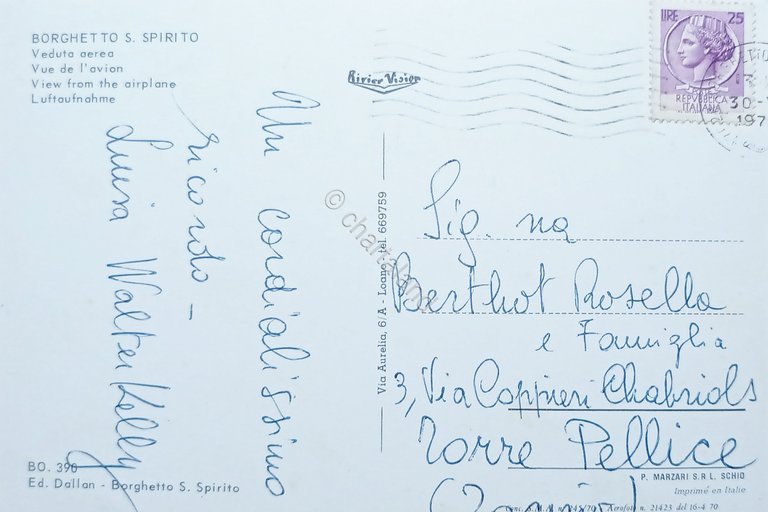 BORGHETTO S. SPIRITO
Veduta aerea
Vue de l'avion
View from the airplane
Luftaufnahme
Rivier Vision
LIRE 25
REPVBBLICA
ITALIANA
30-
197
Un cordialissimo
ricordo -
Luisa Walter Kelly
© chartaland
Via Aurelia, 6/A - Loano - tel. 669759
Sig. na
Berthot Rosella
e Famiglia
3, Via Coppieri Chabriols
Torre Pellice
BO. 390
Ed. Dallan - Borghetto S. Spirito
P. MARZARI S.R L. SCHIO
Imprimé en Italie
Aerofoto n. 21423 del 16-4 70